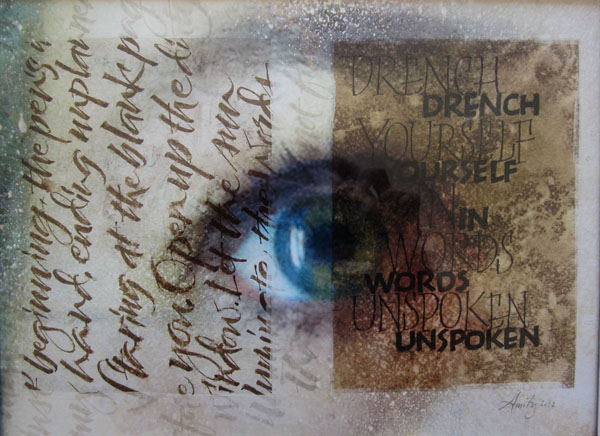 beginning. the pen's in
hand, ending unplanne
Staring at the blank pag
e you Open up the di
ndow. Let the sun
the words
DRENCH
DRENCH
YOURSELF
YOURSELF
IN IN
WORDS
WORDS
UNSPOKEN
UNSPOKEN
Amity 2012